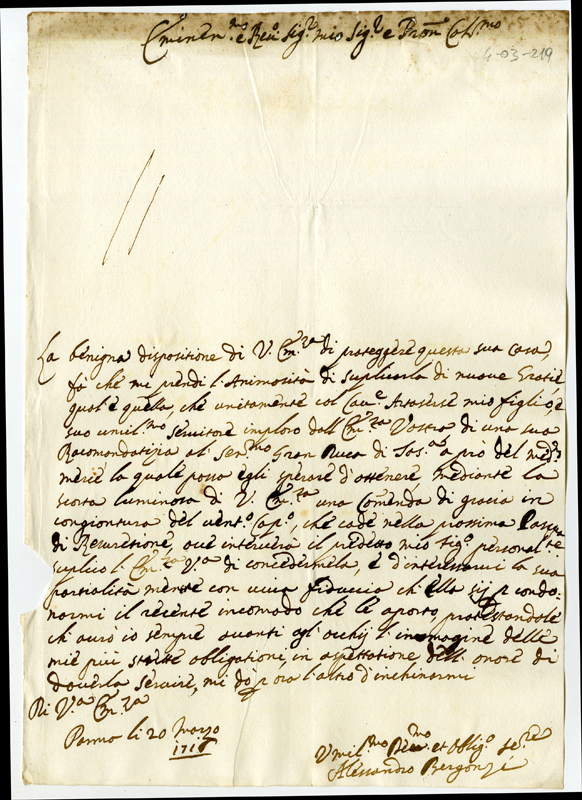 Eminen.mo e Reu. Sig.r mio Sig.r e Pron Col.mo
4-03-219
La benigna dispositione di V. Em.za di proteggere questa sua Casa,
fà che mi prendi l'Animosità di suplicarla di nuoue Gratie
qual è quella, che unitamente col Cau.e mio figlio, e
suo umil.mo seruitore imploro dall'Em.za Vostra di una sua
Racomondatizia al Ser.mo Gran Duca di Tos.na a prò del med.
merce la quale possa egli sperare d'ottenere mediante la
scorta luminosa di V. Em.za una Comenda di gracia in
congiontura del uent.o Cap.o, che cade nella prossima Pasqua
di Resuretione, oue interuerà il predetto mio figo. personal.te
suplico l'Em.za V.a di concedermela, e d'interessarui la sua
partialità mentre con uiua fiducia ch'ella sij p condo-
narmi il recente incomodo che le aporto, protestandole
ch'aurò io sempre auanti agl'occhij l'immagine delle
mie più strette obligatione, in aspettatione dell'onore di
douerla seruire, mi dò p ora l'altro d'inchinarmi
Di V.a Em.za
Parma li 20 Marzo
Vmil.mo et Oblig.o Se.re
Alessandro Bergonzi